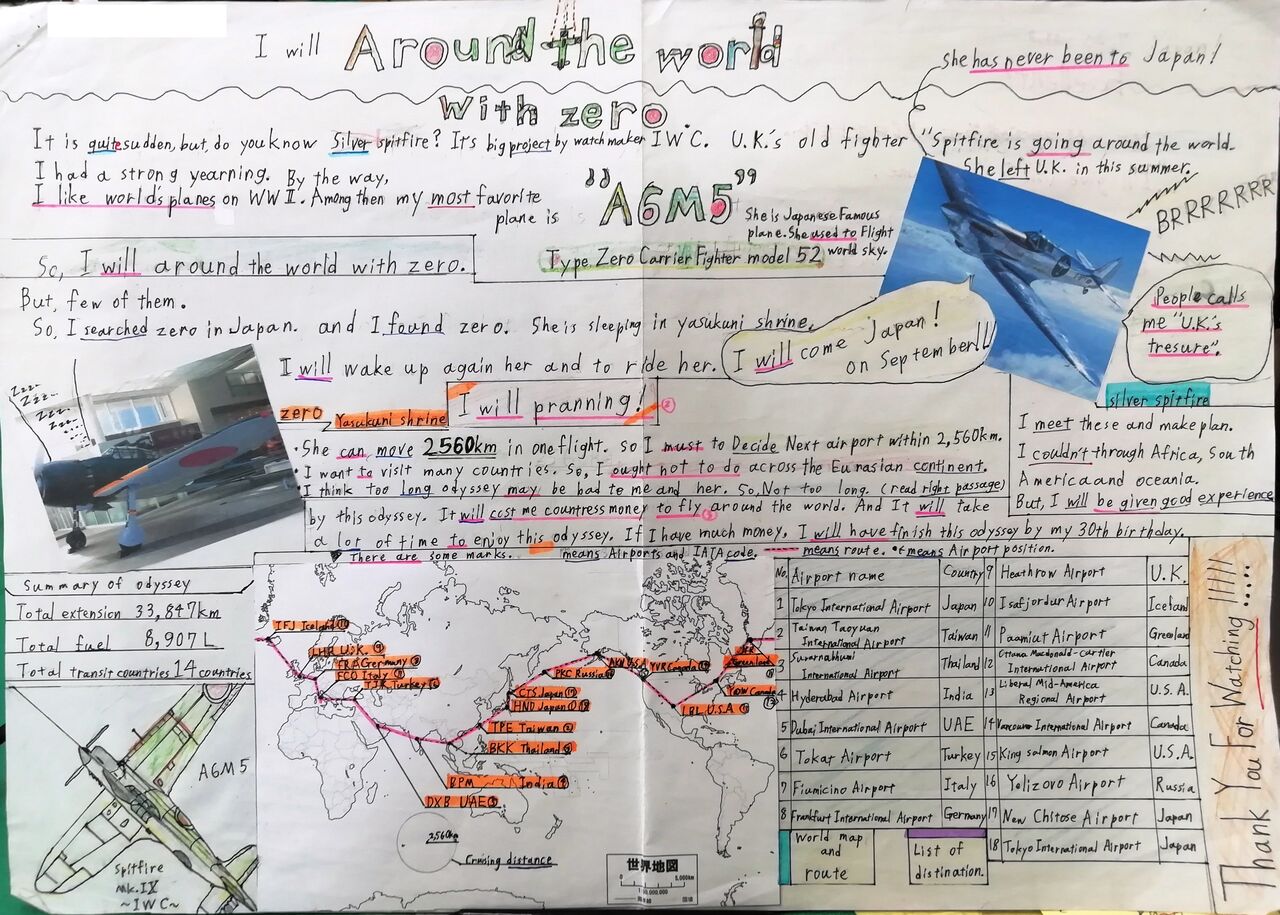 I will Around the world
With zero
she has never been to Japan!
It is quite sudden, but, do you know Silver spitfire? It's big project by watch maker IWC. U.K.'s old fighter "Spitfire is going around the world.
She left U.K. in this summer.
I had a strong yearning. By the way,
I like world's planes on WWⅡ. Among then my most favorite
plane is "A6M5"
She is Japanese Famous
plane. She used to Flight
world sky.
Type Zero Carrier Fighter model 52
So, I will around the world with zero.
BRRRRRRR
But, few of them.
So, I searched zero in Japan. and I found zero. She is sleeping in yasukuni shrine.
I will wake up again her and to ride her.
I will come Japan!
on September!!
People calls
me "U.K.'s
tresure".
silver spitfire
Zzz--
Zzz...
Zzz...
Zzz...
zero Yasukuni shrine
I will pranning! ②
・She can move 2560km in one flight. so I must to Decide Next airport within 2,560km.
・I want to visit many countries. So, I ought not to do across the Eurasian continent.
I think too long odyssey may be bad to me and her. So, Not too long. (read right passage)
I meet these and make plan.
I couldn't through Africa, South
America and oceania.
But, I will be given good experience
by this odyssey. It will cost me countress money to fly around the world. And It will take
a lot of time to enjoy this odyssey. If I have much money, I will have finish this odyssey by my 30th birthday.
There are some marks. means Airports and IATA code. means route. means Airport position.
Summary of odyssey
Total extension 33,847km
Total fuel 8,907L
Total transit countries 14 countries
A6M5
Spitfire
mk.IX
~IWC~
IFJ Iceland
LHR U.K. ⑨
FRA Germany ⑧
FCO Italy ⑦
TJK Turkey ⑥
PKC Russia
CTS Japan ⑰
HND Japan
TPE Taiwan ②
BKK Thailand ③
BPM India ④
DXB UAE ⑤
AKN U.S.A
YVR Canada
LBL U.S.A
YOW Canada
2,560km
Cruising distance
世界地図
0 5,000km
No. Airport name Country 9 Heathrow Airport U.K.
1 Tokyo International Airport Japan 10 Isafjordur Airport Iceland
2 Taiwan Taoyuan International Airport Taiwan 11 Paamiut Airport Greenland
3 Suvarnabhumi International Airport Thailand 12 Ottawa Macdonald-Cartier International Airport Canada
4 Hyderabad Airport India 13 Liberal Mid-America Regional Airport U.S.A.
5 Dubai International Airport UAE 14 Vancouver International Airport Canada
6 Tokat Airport Turkey 15 King salmon Airport U.S.A.
7 Fiumicino Airport Italy 16 Yelizovo Airport Russia
8 Frankfurt International Airport Germany 17 New Chitose Airport Japan
18 Tokyo International Airport Japan
World map
and
route
List of
distination.
Thank You For Watching !!!!!.....